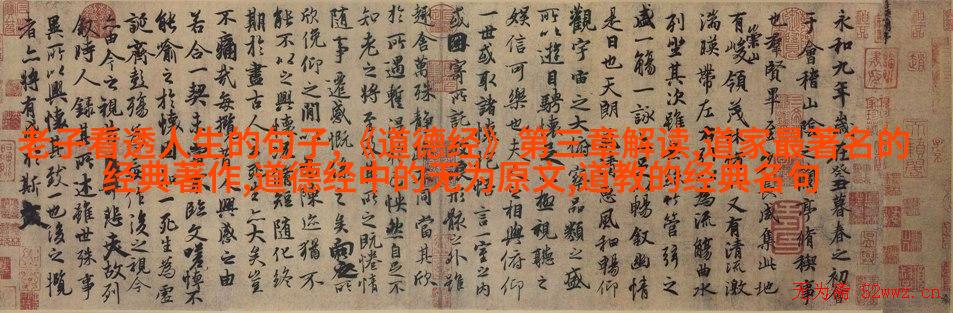 老子看透人生的句子,《道德经》第三章解读,道家最著名的
经典著作,道德经中的无为原文,道教的经典名句
永和九年歲在癸丑暮春之初會
于會稽山陰之蘭亭脩稧事
也羣賢畢至少長咸集此地
有崇山峻領茂林脩竹又有清流激
湍暎帶左右引以為流觴曲水
列坐其次雖無絲竹管弦之
盛一觴一詠亦足以暢敘幽情
是日也天朗氣清惠風和暢仰
觀宇宙之大俯察品類之盛
所以遊目騁懷足以極視聽之
娛信可樂也夫人之相與俯仰
一世或取諸懷抱悟言一室之內
或因寄所託放浪形骸之外雖
趣舍萬殊靜躁不同當其欣
於所遇蹔得於己怏然自足不
知老之將至及其所之既惓情
隨事遷感慨係之矣向之所
欣俛仰之閒以為陳迹猶不
能不以之興懷況脩短隨化終
期於盡古人云死生亦大矣豈
不痛哉每攬昔人興感之由
若合一契未嘗不臨文嗟悼不
能喻之於懷固知一死生為虛
誕齊彭殤為妄作後之視今
亦由今之視昔悲夫故列
敘時人錄其所述雖世殊事
異所以興懷其致一也後之攬
者亦將有感於斯文
无为斋 52wwz.cn